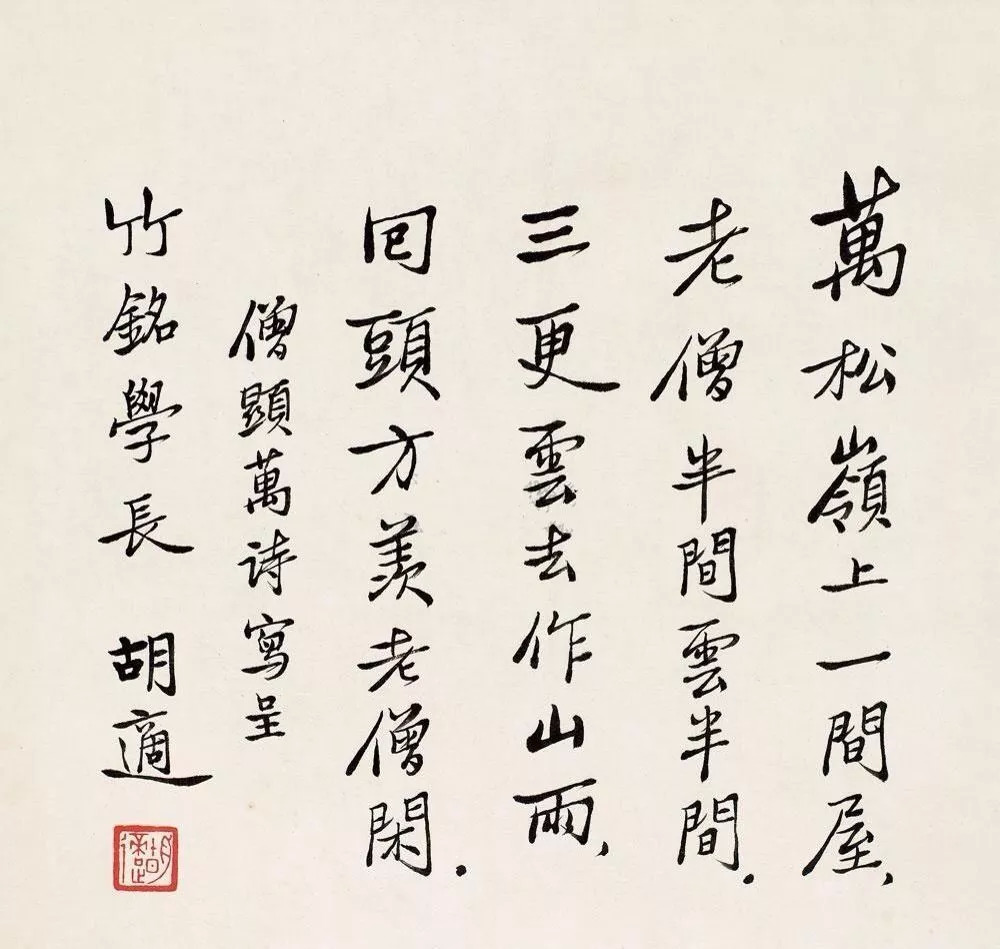 萬松嶺上一間屋、
老僧半間雲半間．
三更雲去作山雨、
回頭方羨老僧閑．
僧顯萬詩寫呈
竹銘學長　胡適
胡適